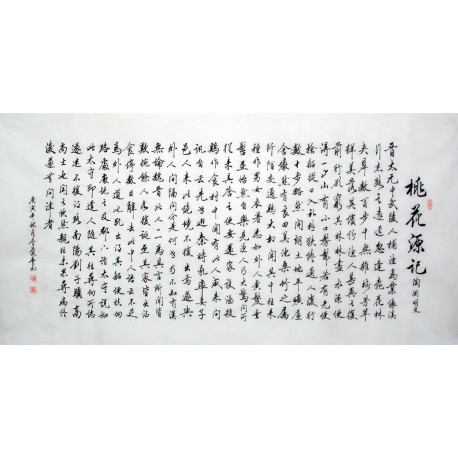 桃花源记
陶渊明文
晋太元中武陵人捕渔为业缘溪
行忘路之远近忽逢桃花林
夹岸数百步中無雜树芳草
鲜美落英缤纷渔人甚异之復
前行欲穷其林林尽水源便
得一山山有小口仿佛若有光便
捨船從口入初极狭才通人復行
数十步豁然開朗土地平曠屋
舍俨然有良田美池桑竹之属
阡陌交通鸡犬相闻其中往来
種作男女衣着悉如外人黄髮垂
髫並怡然自樂見渔人乃大驚問所
從来具答之便要還家設酒殺
鷄作食村中聞有此人咸来問
訊自云先世避秦時亂率妻子
邑人来此绝境不復出焉遂與
外人间隔問今是何世乃不知有漢
無論魏晋此人一一為具言所聞皆
歎惋餘人各復延至其家皆出酒
食停数日辭去此中人語云不足
為外人道也既出得其船便扶向
路處處志之及郡下詣太守說如
此太守即遣人随其往尋向所志
遂迷不復得路南陽劉子驥高
尚士也聞之欣然規往未果尋病终
後遂無問津者
庚寅年秋月